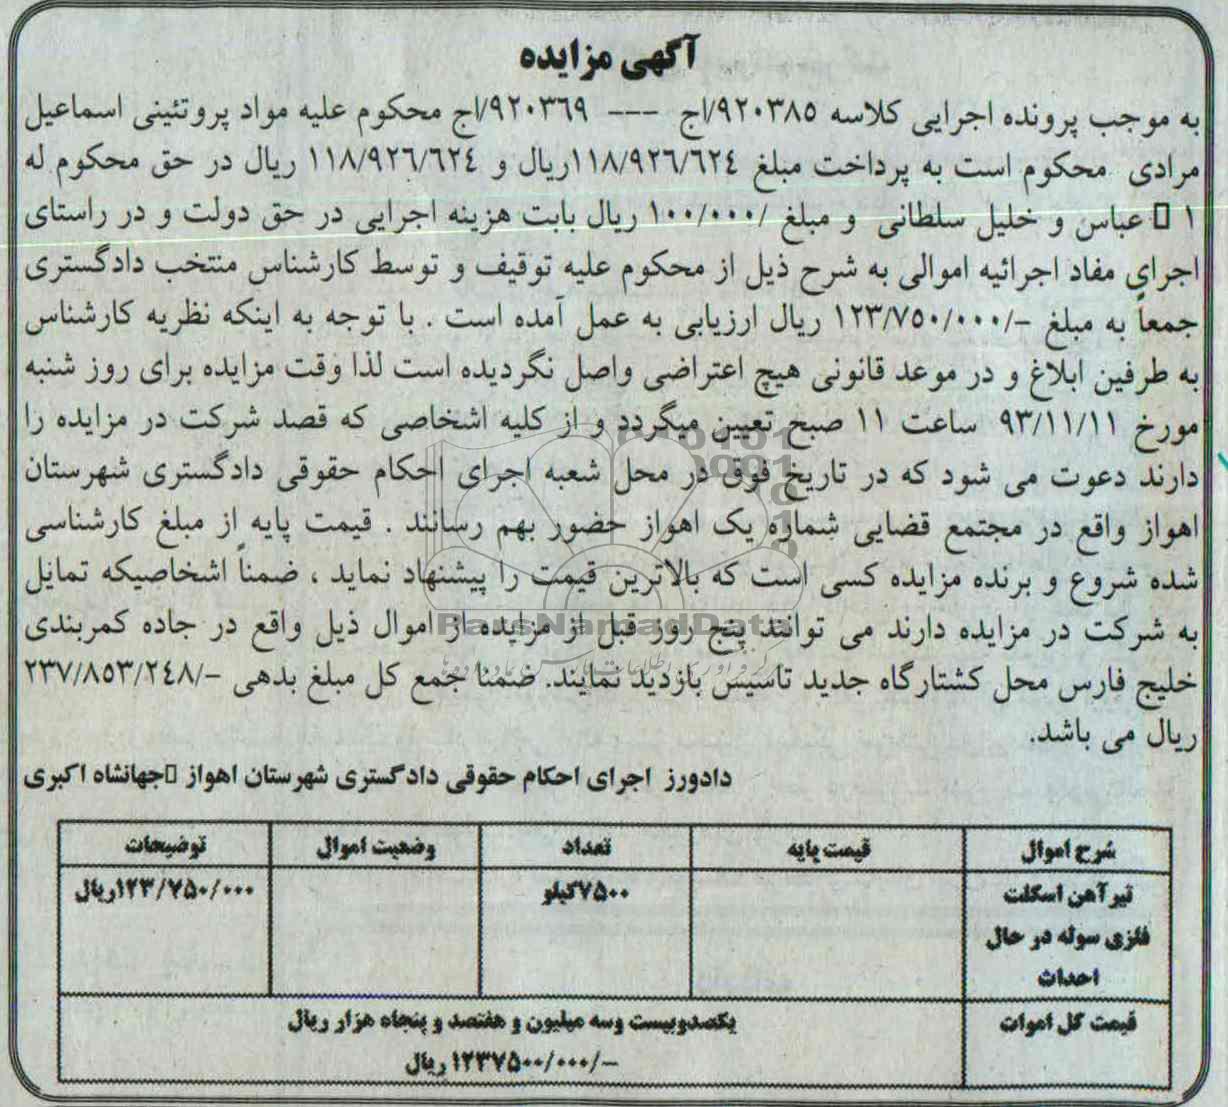 آگهی مزایده
به موجب پرونده اجرایی کلاسه ۹۲۰۳۸۵/اج --- ۹۲۰۳۶۹/اج محکوم علیه مواد پروتئینی اسماعیل
مرادی محکوم است به پرداخت مبلغ ۱۱۸/۹۲۶/۶۲۴ریال و ۱۱۸/۹۲۶/۶۲۴ ریال در حق محکوم له
۱ عباس و خلیل سلطانی و مبلغ /۱۰۰/۰۰۰ ریال بابت هزینه اجرایی در حق دولت و در راستای
اجرای مفاد اجرائیه اموالی به شرح ذیل از محکوم علیه توقیف و توسط کارشناس منتخب دادگستری
جمعاً به مبلغ -/۱۲۳/۷۵۰/۰۰۰ ریال ارزیابی به عمل آمده است . با توجه به اینکه نظریه کارشناس
به طرفین ابلاغ و در موعد قانونی هیچ اعتراضی واصل نگردیده است لذا وقت مزایده برای روز شنبه
مورخ ۹۳/۱۱/۱۱ ساعت ۱۱ صبح تعیین میگردد و از کلیه اشخاصی که قصد شرکت در مزایده را
دارند دعوت می شود که در تاریخ فوق در محل شعبه اجرای احکام حقوقی دادگستری شهرستان
اهواز واقع در مجتمع قضایی شماره یک اهواز حضور بهم رسانند . قیمت پایه از مبلغ کارشناسی
شده شروع و برنده مزایده کسی است که بالاترین قیمت را پیشنهاد نماید ، ضمناً اشخاصیکه تمایل
به شرکت در مزایده دارند می توانند پنج روز قبل از مزایده از اموال ذیل واقع در جاده کمربندی
ParsNamadData
خلیج فارس محل کشتارگاه جدید تاسیس بازدید نمایند. ضمنا جمع کل مبلغ بدهی -/۲۳۷/۸۵۳/۲۴۸
ریال می باشد.
دادورز اجرای احکام حقوقی دادگستری شهرستان اهواز جهانشاه اکبری
شرح اموال قیمت پایه تعداد وضعیت اموال توضیحات
تیرآهن اسکلت ۷۵۰۰کیلو ۱۲۳/۷۵۰/۰۰۰ریال
فلزی سوله در حال
احداث
قیمت کل اموات یکصدوبیست وسه میلیون و هفتصد و پنجاه هزار ریال
-/۱۲۳۷۵۰۰/۰۰۰ ریال